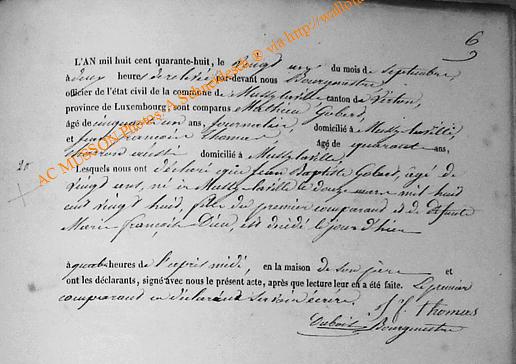 6
L'AN mil huit cent quarante-huit, le vingt un du mois de septembre
à deux heures de relevée par-devant nous Bourgmestre
officier de l'état civil de la commune de Mussy-la-ville canton de Virton,
province de Luxembourg, sont comparus Mathieu Gobert,
âgé de cinquante un ans, journalier domicilié à Mussy-la-ville
et Jean François Thomas âgé de quarante ans,
domicilié à Mussy-la-ville.
20
Lesquels nous ont déclaré que Jean Baptiste Gobert, âgé de
vingt ans, né à Mussy-la-ville le douze mars mil huit
cent vingt huit, fils du premier comparant et de défunte
Marie François Dieu, est décédé le jour d'hier
à quatre heures de l'après midi, en la maison de son père et
ont les déclarants, signé avec nous le présent acte, après que lecture leur en a été faite. Le premier
comparant en déclarant écrire.
J. f. thomas
Dubois Bourgmestre
AC MUSSON Photos A. Schrecklesten © via http://wallo